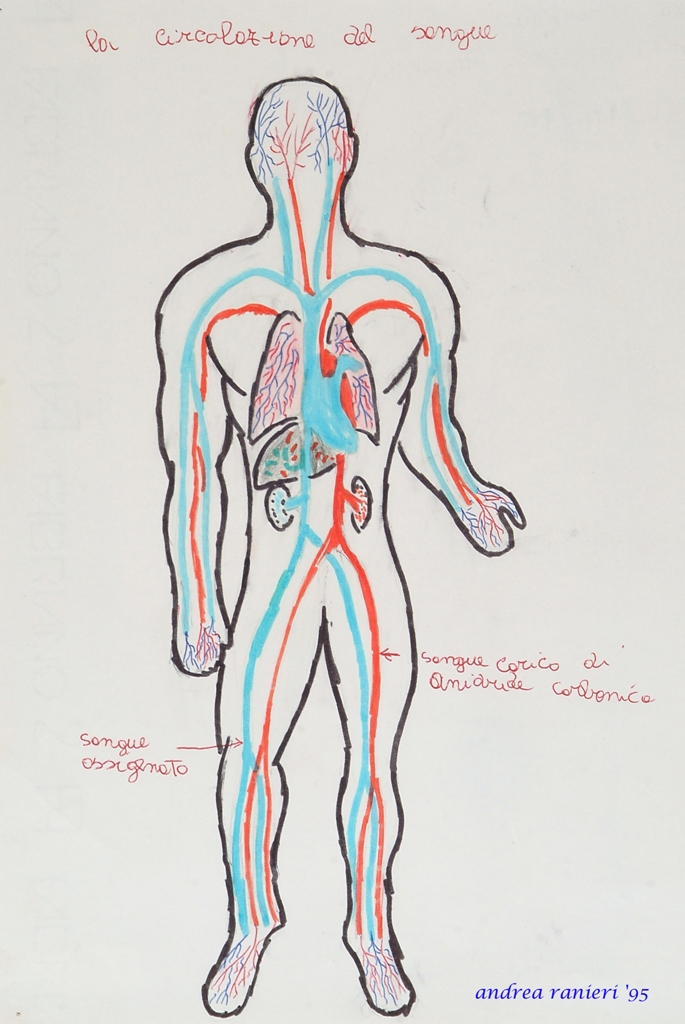 la circolazione del sangue
sangue carico di
anidride carbonica
sangue
ossigenato
andrea ranieri '95